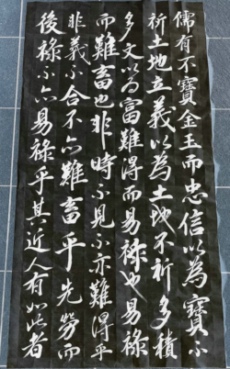 儒有不寶金玉而忠信以為寶不
祈土地立義以為土地不祈多積
多文以為富難得而易祿也易祿
而難畜也非時不見不亦難得乎
非義不合不亦難畜乎先勞而
後祿不亦易祿乎其近人有如此者